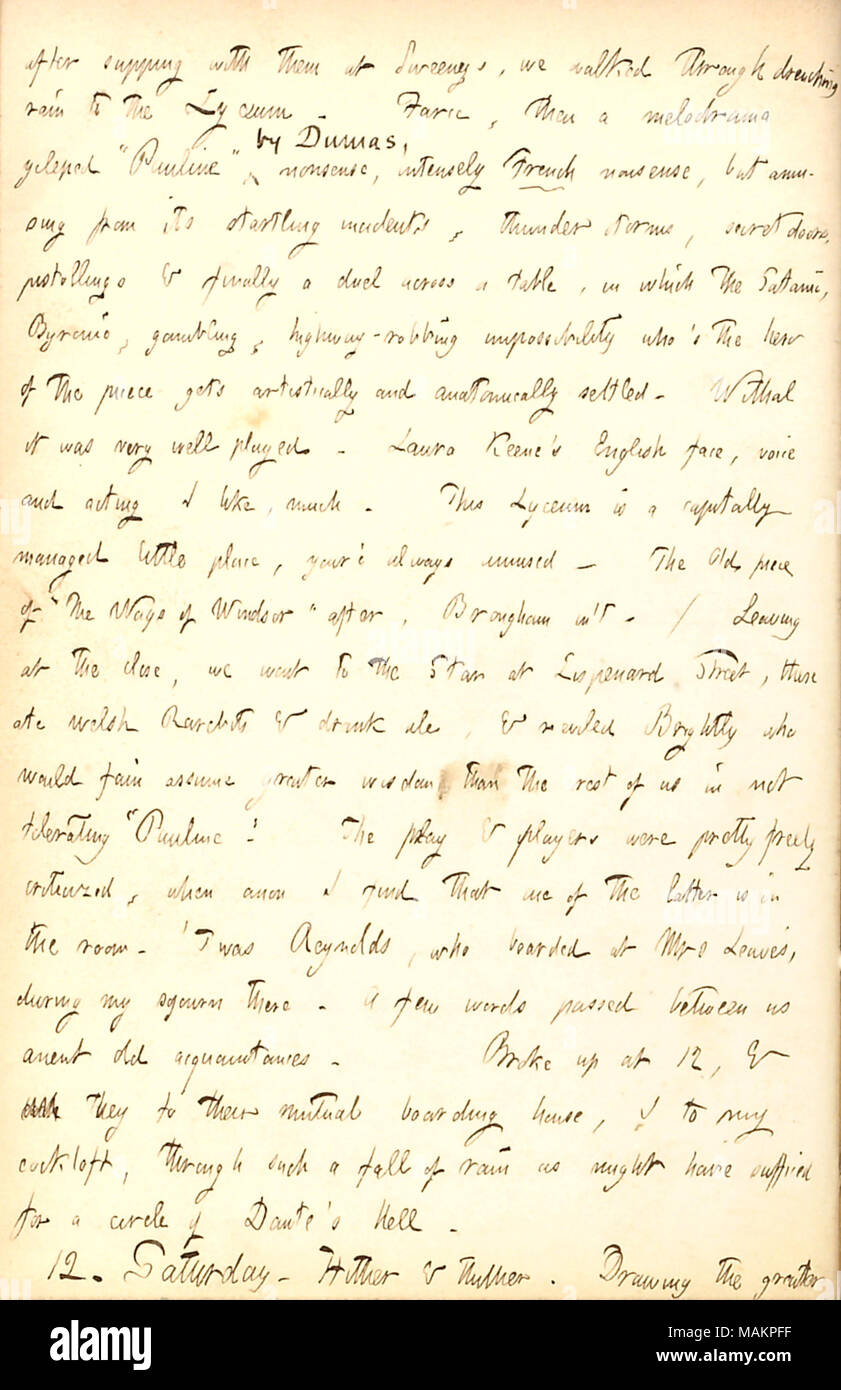 after supping with them at Sweeneys, we walked through drenching
rain to the Lyceum. Farce, then a melodrama
by Dumas,
ycleped "Pauline", nonsense, intensely French nonsense, but amu-
sing from its startling incidents, thunder storms, secret doors,
pistollings & finally a duel across a table, in which the Satanic,
Byronic, gambling, highway-robbing impossibility who's the hero
of the piece gets artistically and anatomically settled. Withal
it was very well played. Laura Keene's English face, voice
and acting I like, much. This Lyceum is a capitally
managed little place, your'e always amused. The Old piece
of "The Wags of Windsor" after, Brougham in't. / Leaving
at the close, we went to the Star at Lispenard Street, there
ate welsh Rarebits & drank ale, & reviled Brightly who
would fain assume greater wisdom than the rest of us in not
tolerating "Pauline". The play & players were pretty freely
criticized, when anon I find that one of the latter is in
the room. 'Twas Reynolds, who boarded at Mrs Leaves,
during my sojourn there. A few words passed between us
anent old acquaintances. Broke up at 12, &
they to their mutual boarding house, I to my
cockloft, through such a fall of rain as might have sufficed
for a circle of Dante's Hell.
12. Saturday. Hither & thither. Drawing the greater
alamy
Image ID: MAKPFF
www.alamy.com